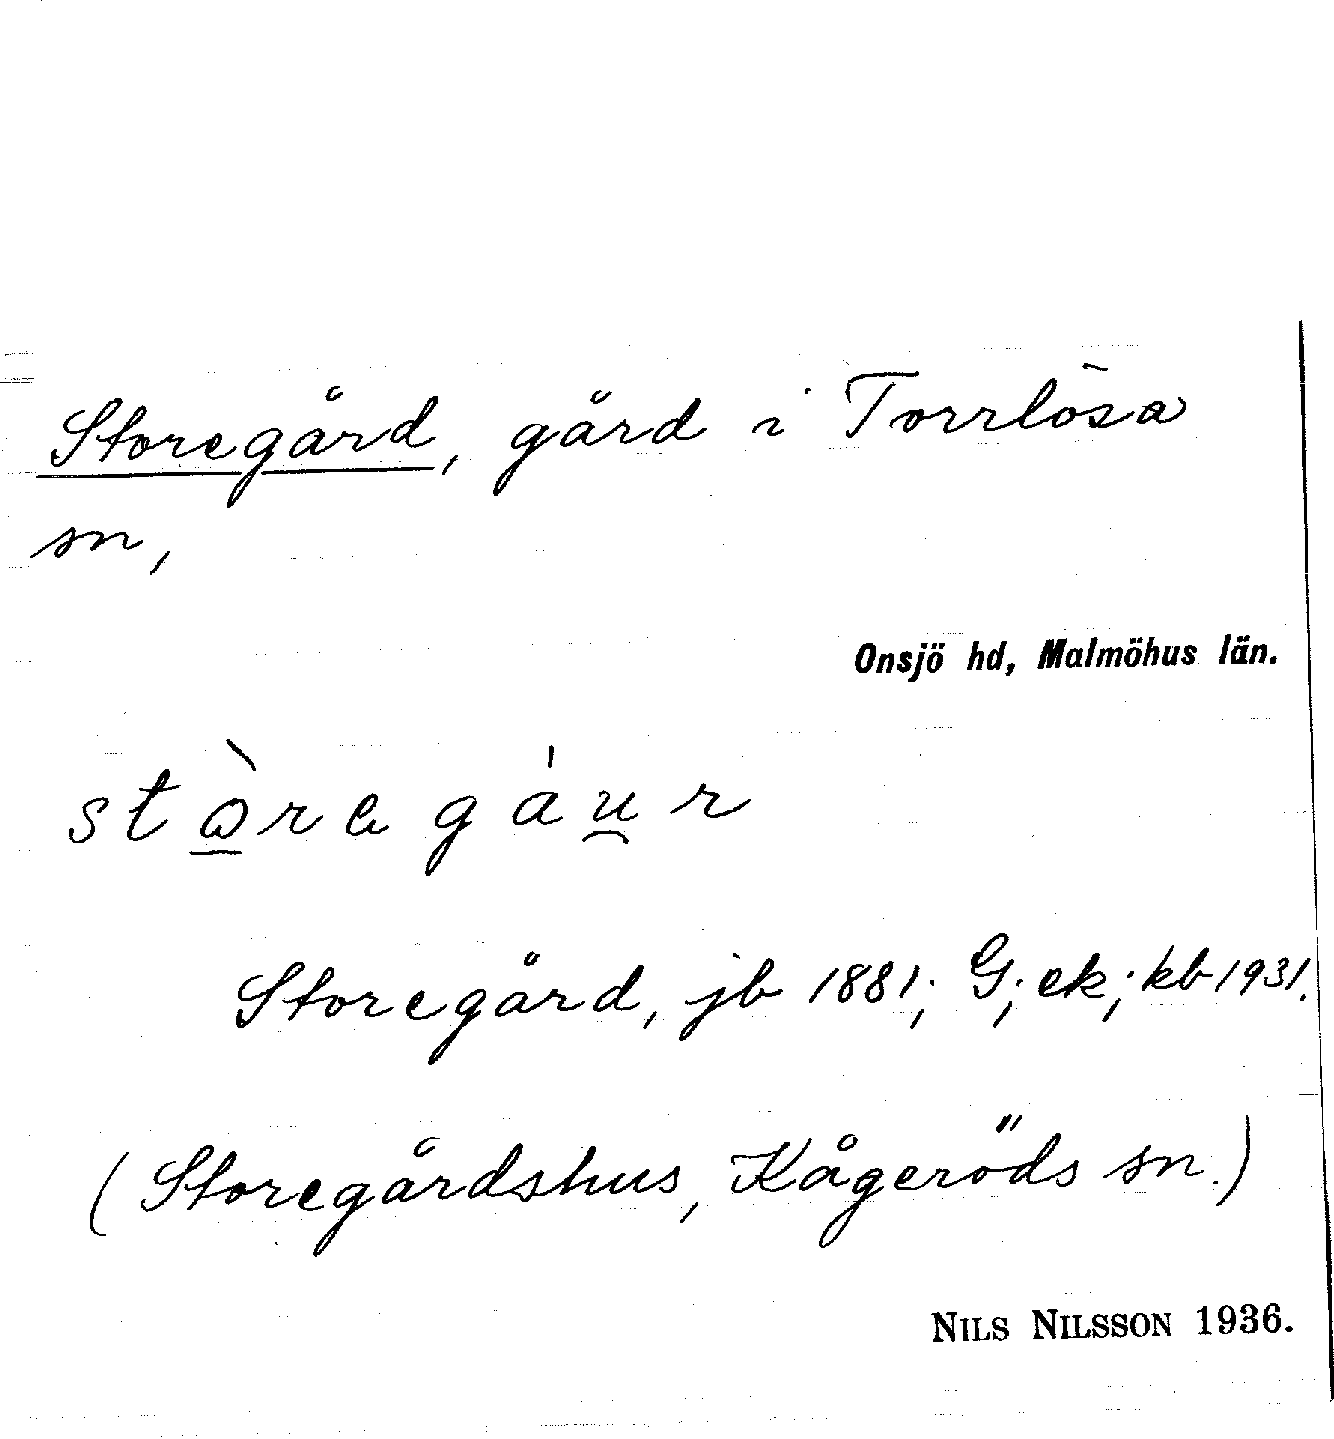 Storegård, gård i Torrlösa
sn,
Onsjö hd, Malmöhus län.
Storegård, jb 1881; G; ek; kb 1931.
(Storegårdshus, Kågeröds sn.)
NILS NILSSON 1936.